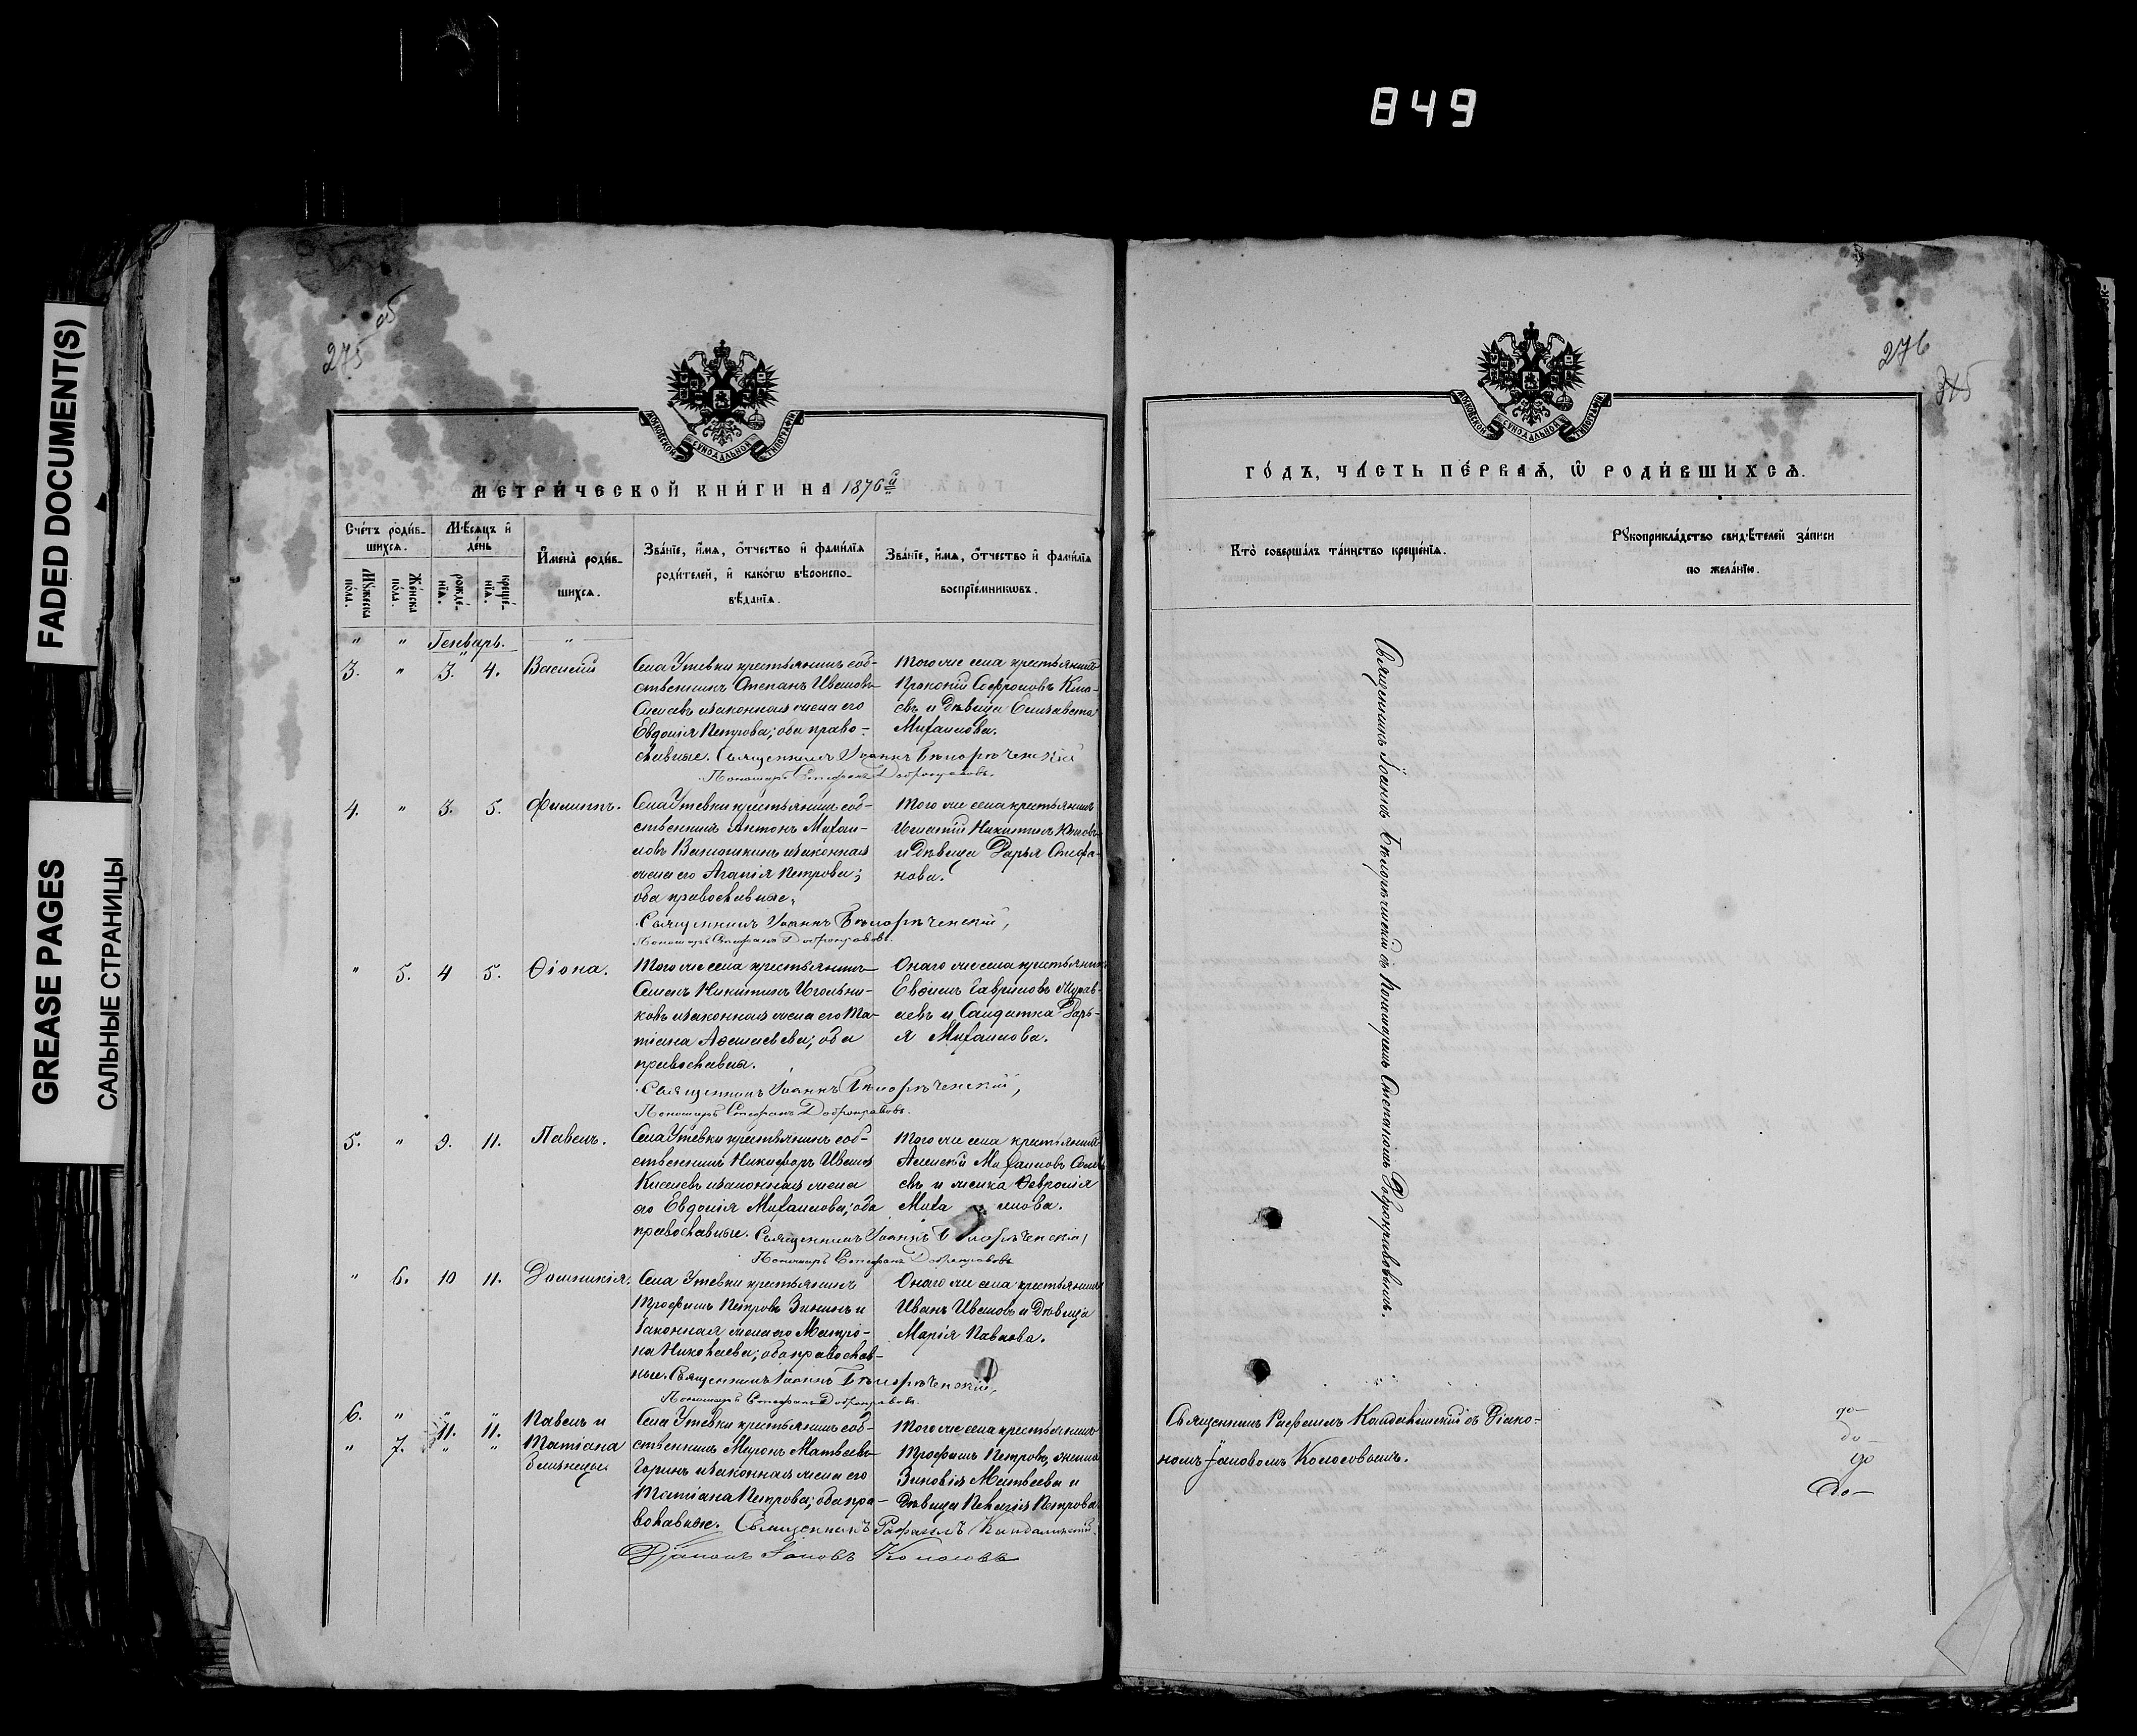 849
FADED DOCUMENT(S)
GREASE PAGES
САЛЬНЫЕ СТРАНИЦЫ
275
МОСКОВСКОЙ СѴНОДАЛЬНОЙ ТИПОГРАФІИ
МЕТРИ́ЧЕСКОЙ КНИ́ГИ НА 1876й
Сче́тъ роди́в-
шихсѧ.
Мꙋ́жеска
по́ла.
Же́нска
по́ла.
Мѣ́сѧцъ и҆
де́нь
рожде́-
нїѧ.
креще́-
нїѧ.
И҆мена̀ роди́в-
шихсѧ.
Зва́нїе, и҆́мѧ, ѻ҆́тчество и҆ фами́лїѧ
роди́телей, и҆ како́гѡ вѣроиспо-
вѣ́данїѧ.
Зва́нїе, и҆́мѧ, ѻ҆́тчество и҆ фами́лїѧ
воспрїе́мникѡвъ.
" " Генварь. "
3. " 3. 4. Василій
Села Утевки крестьянинъ соб-
ственникъ Степанъ Ивановъ
и законная жена его
Евдокія Петрова; оба право-
славные. Священникъ Іоаннъ Бѣлорѣченскій
Пономарь Стефанъ Доброправовъ.
Того же села крестьянинъ
Прокопій Софроновъ
евъ и дѣвица Елизавета
Михаилова.
4. " 3. 5. Филиппъ.
Села Утевки крестьянинъ соб-
ственникъ Антонъ Михаи-
ловъ Ванюшкинъ и законная
жена его Агапія Петрова;
оба православные.
Священникъ Іоаннъ Бѣлорѣченскій,
Пономарь Стефанъ Доброправовъ.
Того же села крестьянинъ
Игнатій Никитинъ
и дѣвица Дарья Стефа-
нова.
" 5. 4 5. Ѳіона.
Того же села крестьянинъ
Семенъ Никитинъ Игольни-
ковъ и законная жена его Та-
тіана Алексеева; оба
православные.
Священникъ Іоаннъ Бѣлорѣченскій,
Пономарь Стефанъ Доброправовъ.
Онаго же села крестьянинъ
Евфимъ Гавриловъ Мурав-
левъ и Солдатка Дарь-
я Михаилова.
5. " 9. 11. Павелъ.
Села Утевки крестьянинъ соб-
ственникъ Никифоръ Ивановъ
Киселевъ и законная жена
его Евдокія Михаилова; оба
православные. Священникъ Іоаннъ Бѣлорѣченскій,
Пономарь Стефанъ Доброправовъ
Того же села крестьянинъ
Алексѣй Михаиловъ
евъ и женка Ѳевронія
Михаилова.
" 6. 10 11. Домникія.
Села Утевки крестьянинъ
Трофимъ Петровъ Зининъ и
законная жена его Матро-
на Николаева; оба православ-
ные. Священникъ Іоаннъ Бѣлорѣченскій,
Пономарь Стефанъ Доброправовъ.
Онаго же села крестьянинъ
Иванъ Ивановъ и Дѣвица
Марія Павлова.
6. " 11. 11. Павелъ и
" 7. " " Татіана
близнецы.
Села Утевки крестьянинъ соб-
ственникъ Миронъ Матвеевъ
Горинъ и законная жена его
Татіана Петрова; оба пра-
вославные. Священникъ Рафаилъ
Діаконъ Іаковъ Колосовъ
Того же села крестьянинъ
Трофимъ Петровъ,
Зиновія Матвеева и
Дѣвица Пелагія Петрова
276
МОСКОВСКОЙ СѴНОДАЛЬНОЙ ТИПОГРАФІИ
ГО́ДЪ, ЧА́СТЬ ПЕ́РВАѦ, Ѡ҆ РОДИ́ВШИХСѦ.
Кто̀ соверша́лъ та́инство креще́нїѧ.
Рꙋкоприкла́дство свидѣ́телей за́писи
по жела́нїю.
Священникъ Іоаннъ Бѣлорѣченскій съ Пономаремъ Стефаномъ Доброправовымъ.
Священникъ Рафаилъ съ Діако-
номъ Іаковомъ Колосовымъ.